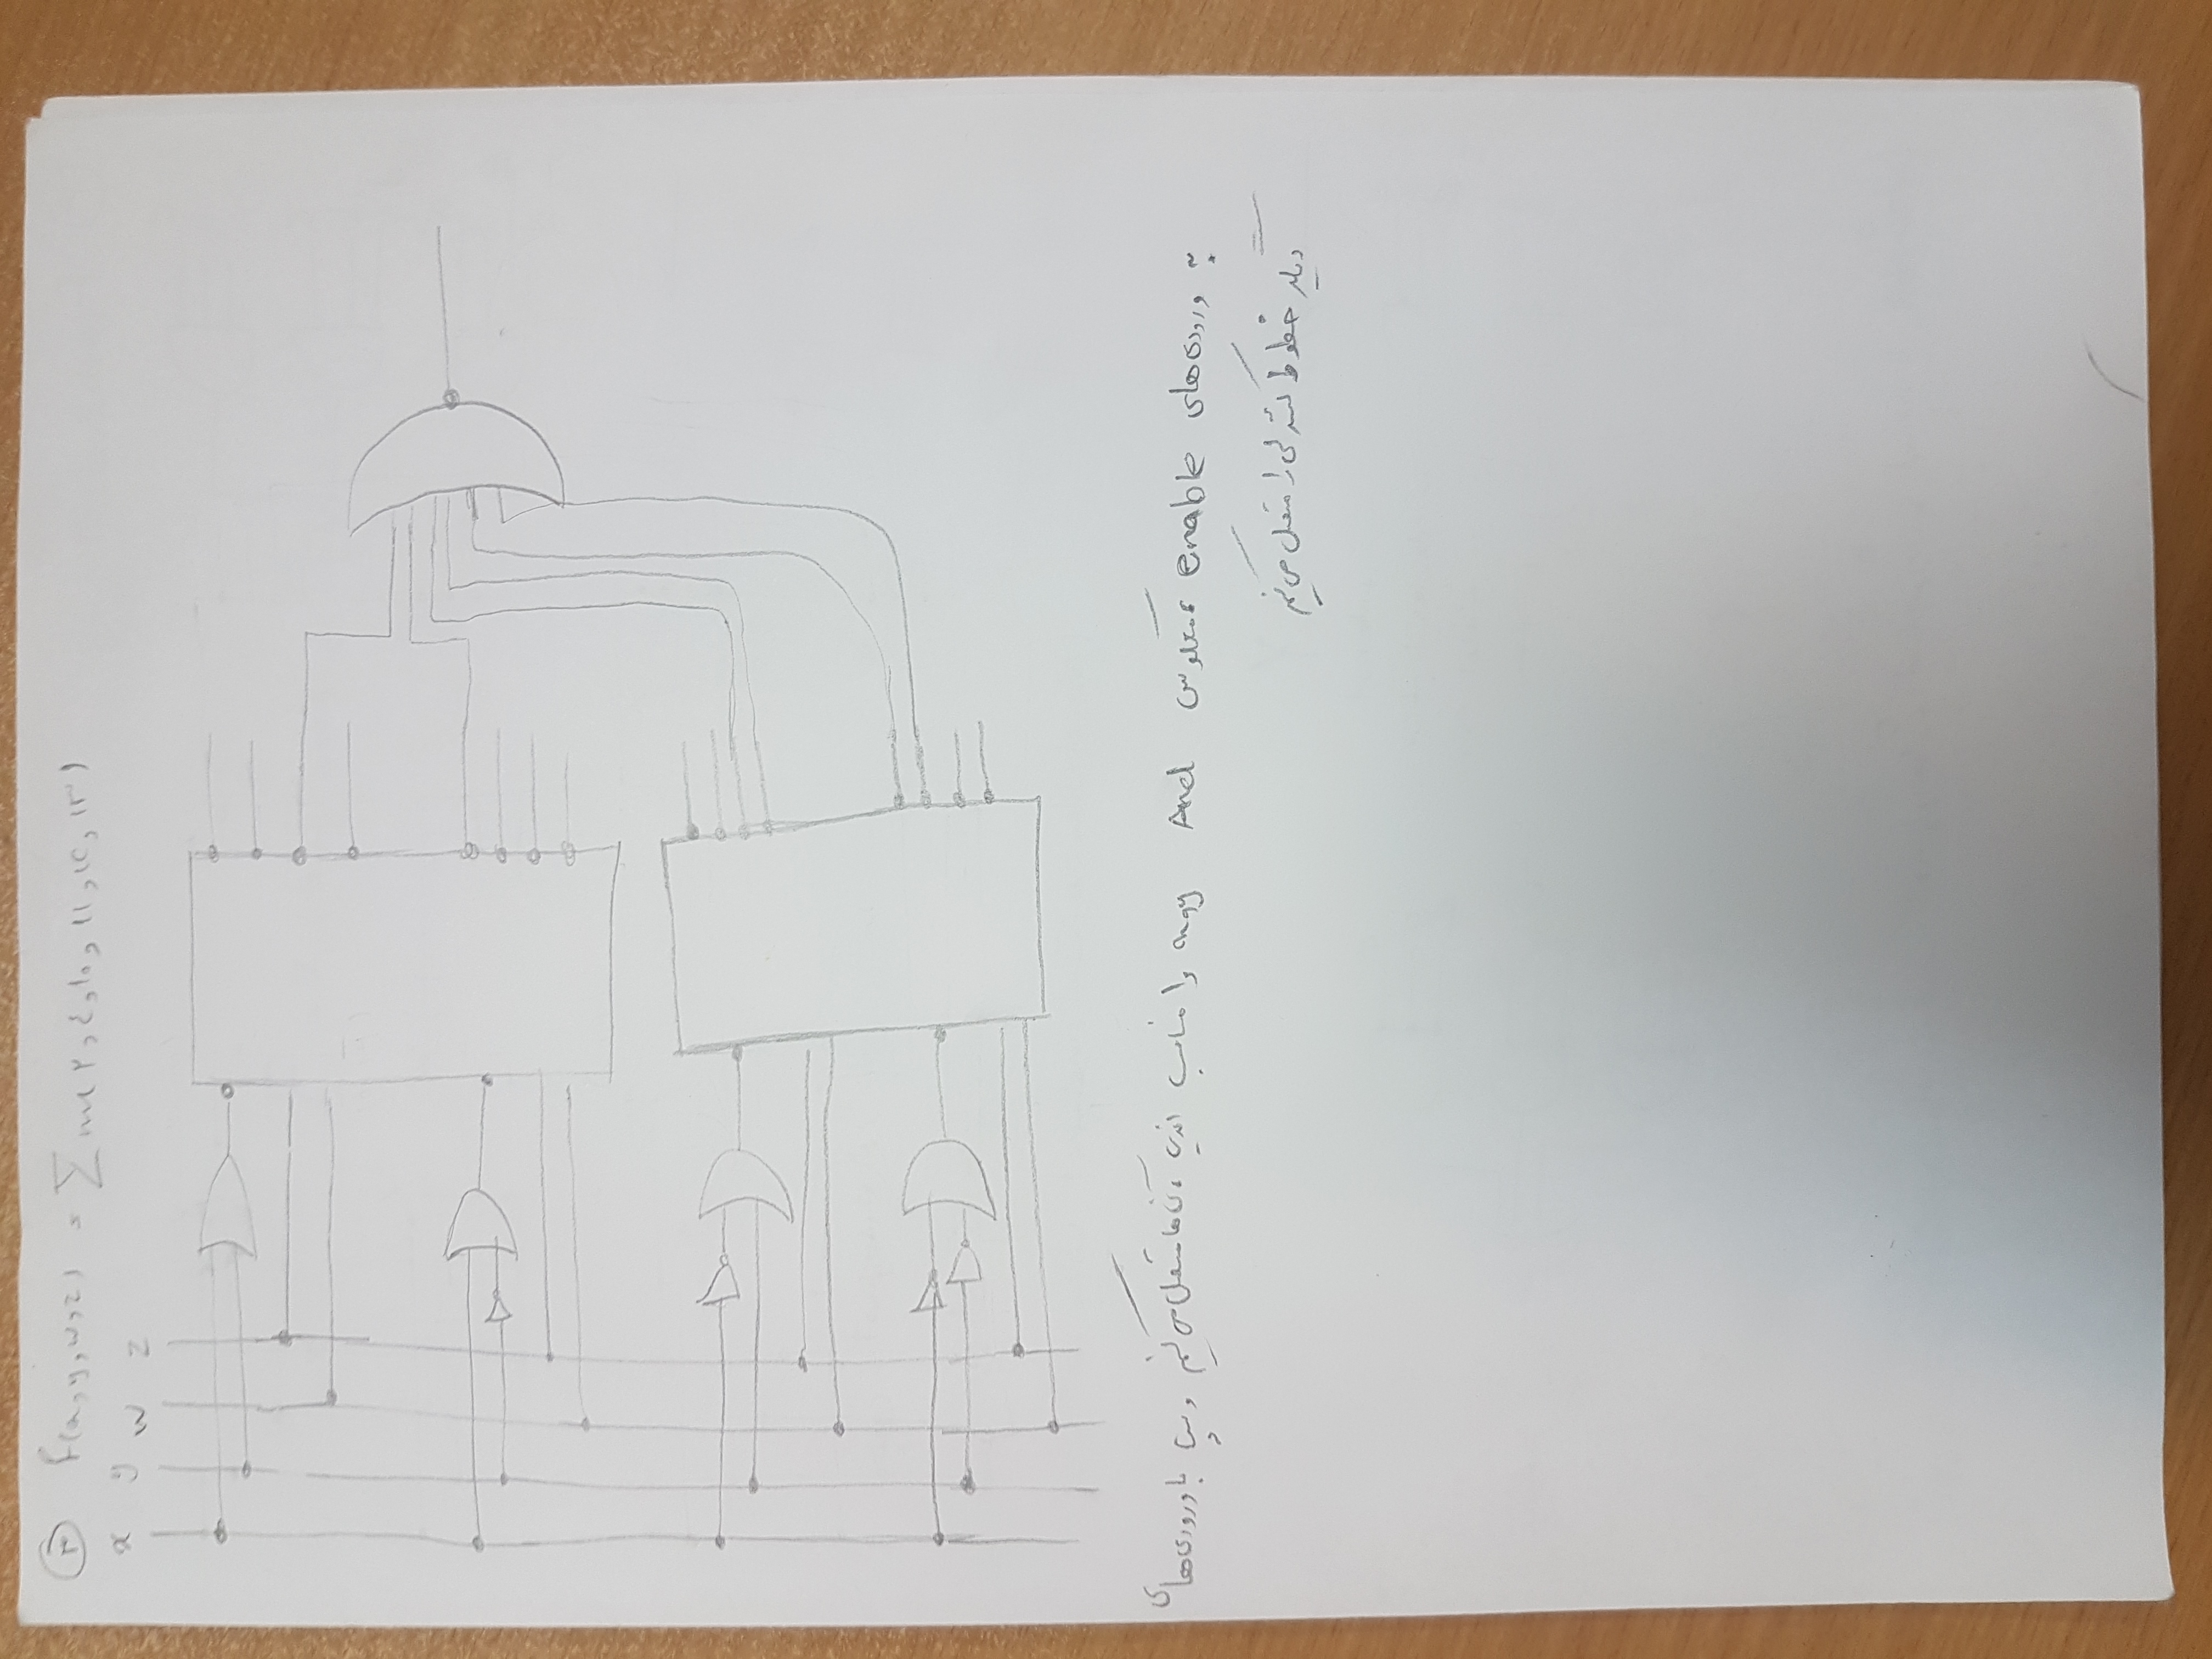 ③ f(x,y,w,z) = ∑m(۲,٤,۱۰,۱۱,۱۲,۱۳)
x y w z
به ورودی‌های enable معکوس And x,y را مناسب اندیس آن‌ها متصل می‌کنیم و سپس با ورودی‌های
دیگر خطوط کنترلی را متصل می‌کنیم